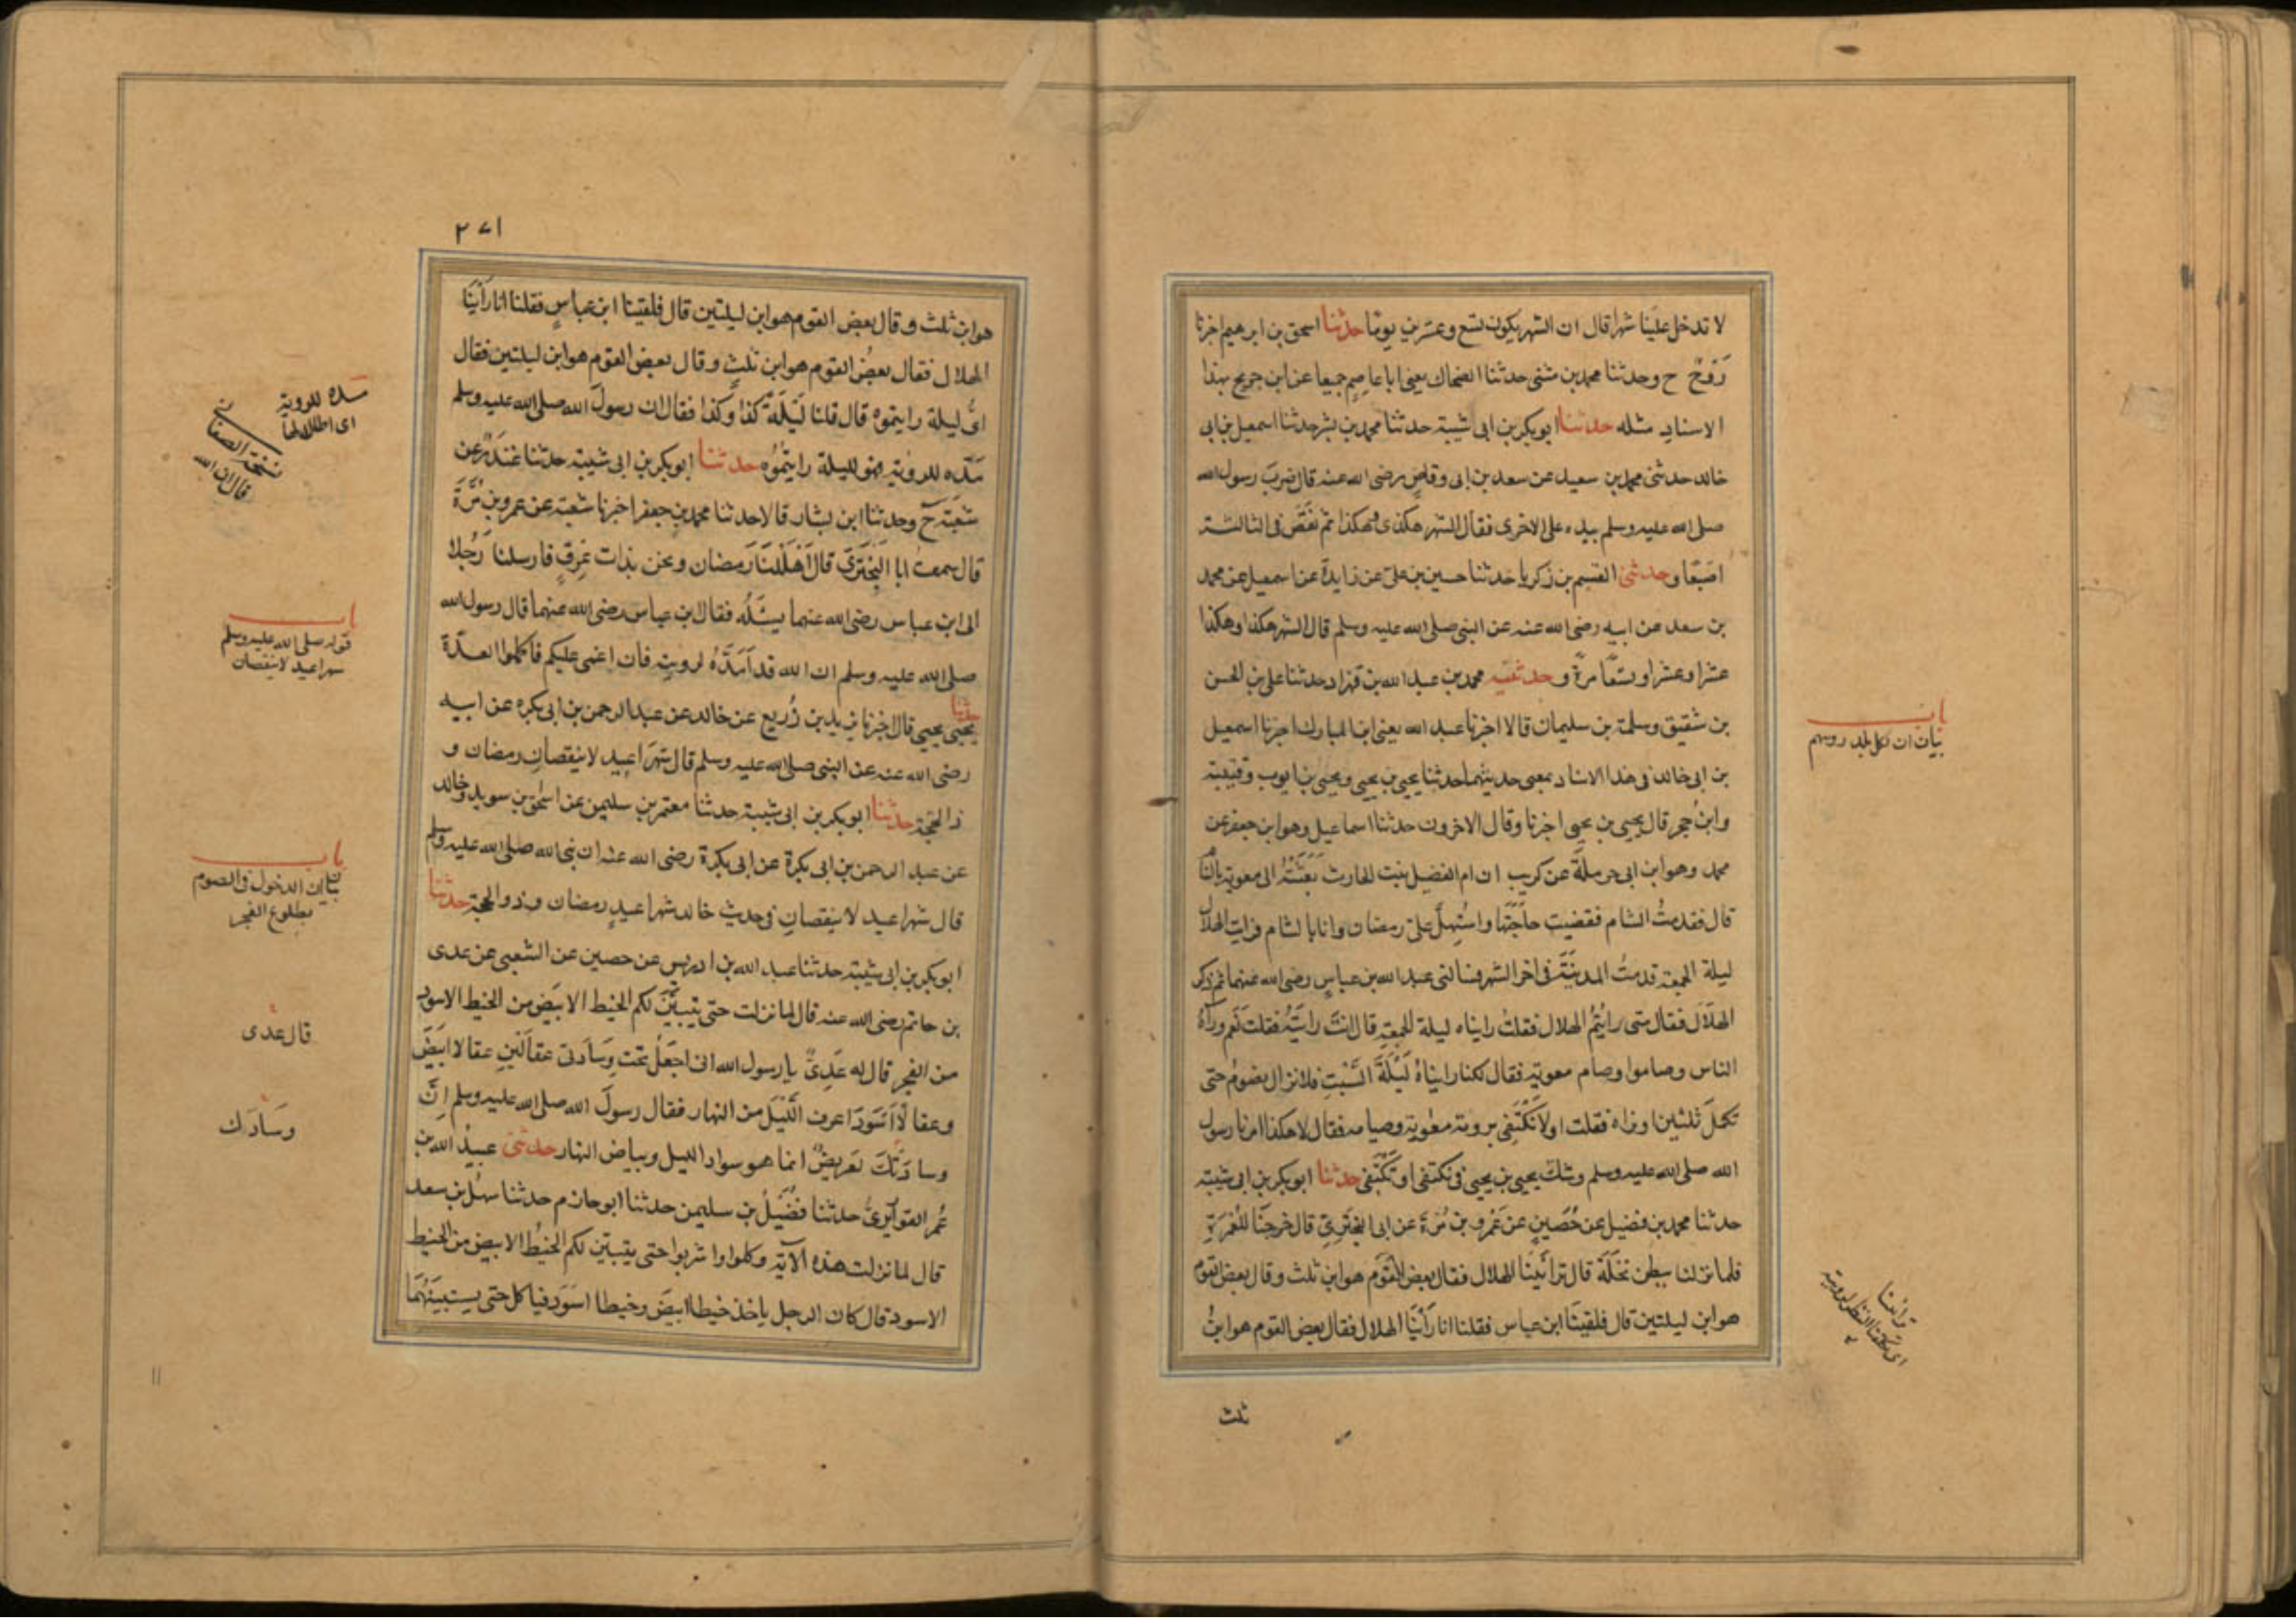 لا تدخل علينا شهرا قال ان الشهر يكون تسع وعشرين يوما حدثنا اسحق بن ابرهيم اخبرنا
رَوْحٌ ح وحدثنا محمد بن مثنى حدثنا الضحاك يعنى ابا عاصم جميعا عن ابن جريج بهذا
الاسناد مثله حدثنا ابو بكر بن ابى شيبة حدثنا محمد بن بشر حدثنا اسمعيل بن ابى
خالد حدثنى محمد بن سعيد عن سعد بن ابى وقاص رضى الله عنه قال ضرب رسول الله
صلى الله عليه وسلم بيده على الاخرى فقال الشهر هكذى وهكذا ثم نقص فى الثالثة
اصبعا وحدثنى القسم بن زكريا حدثنا حسين بن على عن زايدة عن اسمعيل عن محمد
بن سعد عن ابيه رضى الله عنه عن النبى صلى الله عليه وسلم قال الشهر هكذا وهكذا
عشرا وعشرا وتسعا مرة وحدثنيه محمد بن عبد الله بن قهزاد حدثنا على بن الحسن
بن شقيق وسلمة بن سليمان قالا اخبرنا عبد الله يعنى ابن المبارك اخبرنا اسمعيل
بن ابى خالد فى هذا الاسناد بمعنى حديثهما حدثنا يحيى بن يحيى ويحيى بن ايوب وقتيبة
وابن حجر قال يحيى بن يحيى اخبرنا وقال الاخرون حدثنا اسماعيل وهو ابن جعفر عن
محمد وهو ابن ابى حرملة عن كريب ان ام الفضل بنت الحارث بَعَثَتْهُ الى معوية بالشام
قال فقدمتُ الشام فقضيت حاجَتَها واستُهِلَّ علىّ رمضان وانا بالشام فرايت الهلال
ليلة الجمعة قدمتُ المدينَةَ فى اخر الشهر فسالنى عبد الله بن عباس رضى الله عنهما ثم ذكر
الهلال فقال متى رايتُمُ الهلال فقلتُ رايناه ليلة الجمعة قال انتَ رايتَهُ فقلت نعم ورآهُ
الناس وصاموا وصام معوية فقال لكنا رايناهُ لَيْلَةَ السَّبْتِ فلا نزال نصوم حتى
نكمل ثلثين او نراه فقلت اولا نَكْتَفِى برويةِ معٰوية وصيامه فقال لا هكذا امرنا رسول
الله صلى الله عليه وسلم وشك يحيى بن يحيى فى نكتفى او تَكْتَفى حدثنا ابو بكر بن ابى شيبة
حدثنا محمد بن فضيل عن حُصَينٍ عن عَمْرو بن مُرّةَ عن ابى البختَرِىّ قال خرجنا للعُمْرَةِ
فلما نزلنا ببطن نخْلَةَ قال ترائَينَا الهلال فقال بعض القَوْم هو ابن ثلث وقال بعض القوم
هو ابن ليلتين قال فلقينَا ابن عباس فقلنا انا رَأَيْنَا الهلال فقال بعض القوم هو ابنُ
ثلث
باب
بيان ان لكل بلد رويتهم
تراينا
اى تكلفنا النظر لرويته
٢٧١
هو ابن ثلث وقال بعض القوم هو ابن ليلتين قال فلقينا ابن عباسٍ فقلنا انا رأَيْنَا
الهلال فقال بعضُ القوم هو ابن ثلثٍ وقال بعض القوم هو ابن ليلتين فقال
اىُّ ليلة رايتموه قال قلنا لَيْلَةَ كذا وكذا فقال ان رسولَ الله صلى الله عليه وسلم
مَدَّه للروية فهو لليلة رايتموُه حدثنا ابو بكر بن ابى شيبة حدثنا غُندَرٌ عن
شعبَة ح وحدثنا ابن بشار قالا حدثنا محمد بن جعفر اخبرنا شعبة عن عمرو بن مُرَّةَ
قال سمعتُ ابا البَخْتَرِىّ قال اَهْلَلْنَا رَمضان ونحن بذات عِرقٍ فارسلنا رَجُلا
الى ابن عباس رضى الله عنهما يسئَلُه فقال ابن عباس رضى الله عنهما قال رسول الله
صلى الله عليه وسلم ان الله قد اَمَدَّهُ لرويته فان اغمى عليكم فاكملوا العدّةَ
حدثنا
يحيى بن يحيى قال اخبرنا يزيد بن زُريع عن خالد عن عبد الرحمن بن ابى بكره عن ابيه
رضى الله عنه عن النبى صلى الله عليه وسلم قال شهرَا عيدٍ لا ينقصانِ رمضان و
ذا الحجّة حدثنا ابو بكر بن ابى شيبة حدثنا معتمر بن سليمن عن اسحق بن سويد وخالد
عن عبد الرحمن بن ابى بكرة عن ابى بكرة رضى الله عنه ان نبى الله صلى الله عليه وسلم
قال شهرا عيد لا ينقصانِ فى حديث خالد شهرا عيدٍ رمضان وذو الحجة حدثنا
ابو بكر بن ابى شيبة حدثنا عبد الله بن ادريس عن حصين عن الشعبى عن عدى
بن حاتم رضى الله عنه قال لما نزلت حتى يتبيَّنَ لكم الخيط الابيَض من الخيط الاسود
من الفجر قال له عَدِىٌّ يا رسول الله انى اجْعَلُ تحت وِسَادتى عقالَينِ عقالا ابيَضَ
وعقالًا اَسْوَدَ اعرف اللَّيلَ من النهار فقال رسولُ الله صلى الله عليه وسلم اِنَّ
وسادَتَكَ لعَريضٌ انما هو سواد الليل وبياض النهار حدثنى عبيدُ الله بن
عُمر القواريرىُّ حدثنا فُضَيْلُ بن سليمن حدثنا ابو حازم حدثنا سهلُ بن سعد
قال لما نزلت هذه الآية وكلوا واشربوا حتى يتبيّن لكم الخيطُ الابيض من الخيط
الاسود قال كان الرجل ياخذ خيطا ابيضَ وخيطا اسوَد فياكل حتى يستبينَهُمَا
مده للروية
اى اطال لها
نسخة الصغانى
قال ان الله
باب
قوله صلى الله عليه وسلم
شهرا عيد لا ينقصان
باب
بيان ان الدخول فى الصوم
بطلوع الفجر
قال عدى
وسَادَك